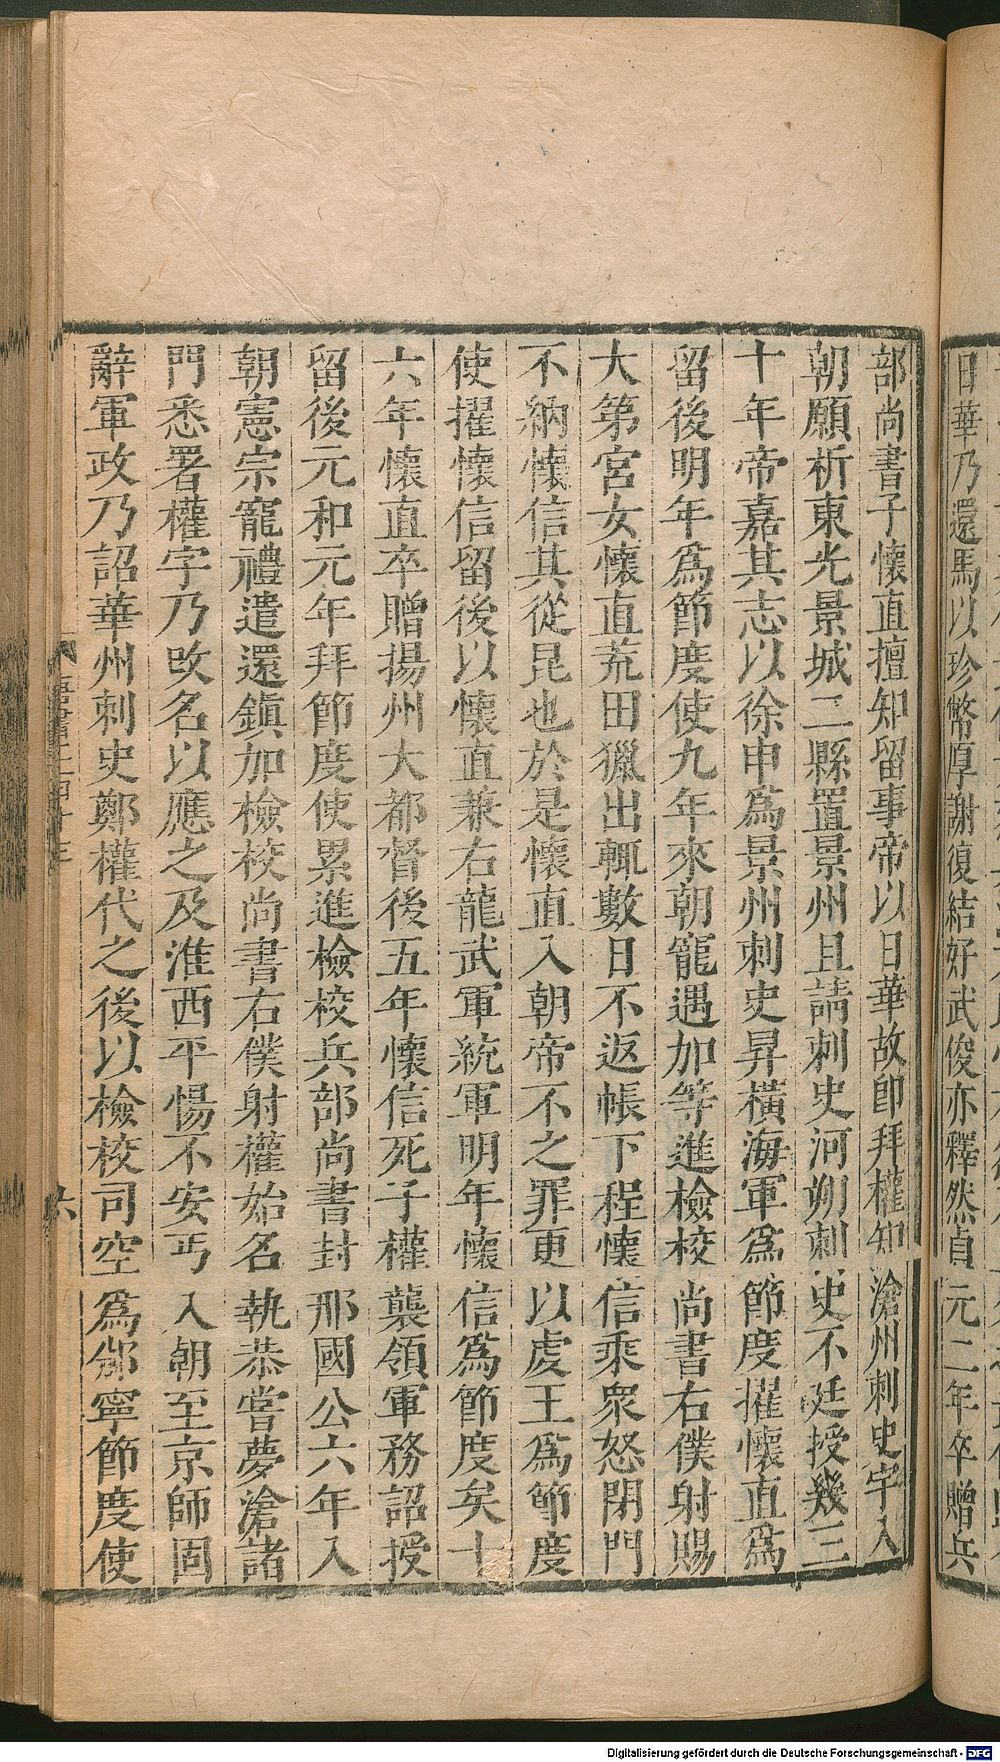 日華乃還馬以珍幣厚謝復結好武俊亦釋然貞元二年卒贈兵
部尚書子懷直擅知留事帝以日華故卽拜權知滄州刺史宇入
朝願祈東光景城二縣置景州且請刺史河朔刺史不廷授幾三
十年帝嘉其志以徐申爲景州刺史昇橫海軍爲節度擢懷直爲
留後明年爲節度使九年來朝寵遇加等進檢校尚書右僕射賜
大第宮女懷直荒田獵出輒數日不返帳下程懷信乘衆怒閉門
不納懷信其從昆也於是懷直入朝帝不之罪更以虔王爲節度
使擢懷信留後以懷直兼右龍武軍統軍明年懷信爲節度矣十
六年懷直卒贈揚州大都督後五年懷信死子權襲領軍務詔授
留後元和元年拜節度使累進檢校兵部尚書封邢國公六年入
朝憲宗寵禮遣還鎮加檢校尚書右僕射權始名執恭嘗夢滄諸
門悉署權字乃改名以應之及淮西平惕不安丐入朝至京師固
辭軍政乃詔華州刺史鄭權代之後以檢校司空爲邠寧節度使
六
Digitalisierung gefördert durch die Deutsche Forschungsgemeinschaft - DFG